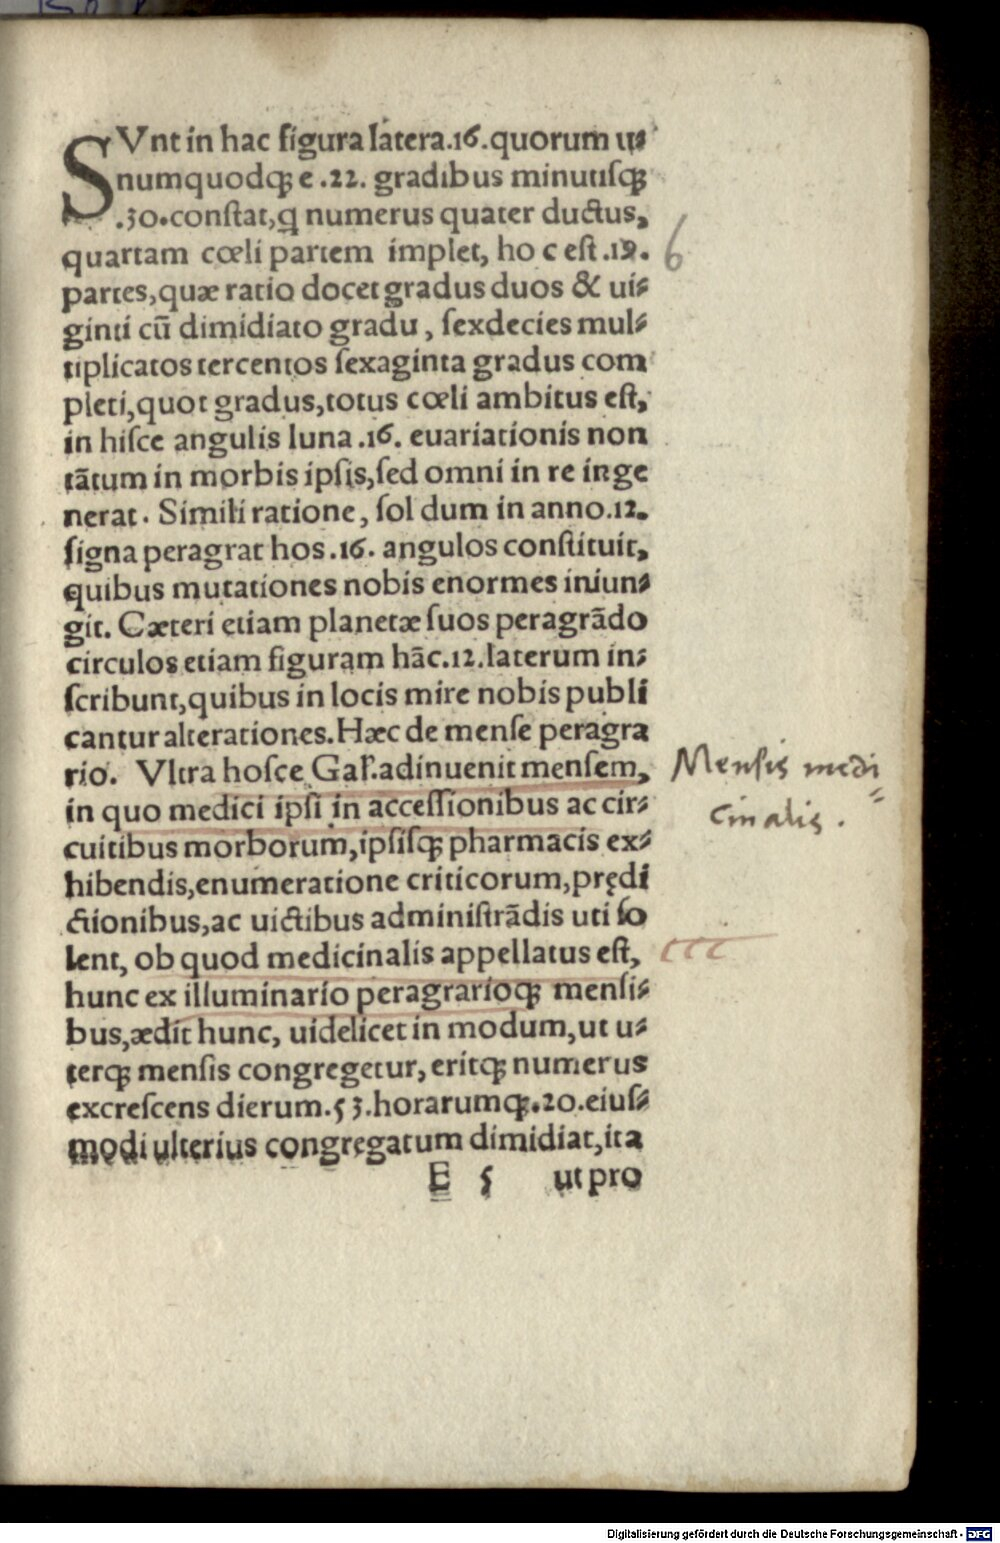 SVnt in hac figura latera.16.quorum u⸗
numquodqꝫ e .22. gradibus minutisqꝫ
.30.constat,q numerus quater ductus,
quartam cœli partem implet, ho c est .19.
6
partes,quæ ratio docet gradus duos & ui⸗
ginti cū dimidiato gradu, sexdecies mul⸗
tiplicatos tercentos sexaginta gradus com
pleti,quot gradus,totus cœli ambitus est,
in hisce angulis luna .16. euariationis non
tātum in morbis ipsis,sed omni in re inge
nerat. Simili ratione, sol dum in anno.12.
signa peragrat hos .16. angulos constituit,
quibus mutationes nobis enormes iniun⸗
git. Cæteri etiam planetæ suos peragrādo
circulos etiam figuram hāc.12.laterum in⸗
scribunt,quibus in locis mire nobis publi
cantur alterationes.Hæc de mense peragra
rio. Vltra hosce Gal'.adinuenit mensem,
Mensis medi⸗
cinalis.
in quo medici ipsi in accessionibus ac cir⸗
cuitibus morborum,ipsisqꝫ pharmacis ex⸗
hibendis,enumeratione criticorum,prędi
ctionibus,ac uictibus administrādis uti so
lent, ob quod medicinalis appellatus est,
hunc ex illuminario peragrarioqꝫ mensi⸗
bus,ædit hunc, uidelicet in modum,ut u⸗
terqꝫ mensis congregetur, eritqꝫ numerus
excrescens dierum.53.horarumqꝫ.20.eius⸗
modi ulterius congregatum dimidiat,ita
E 5 ut pro
Digitalisierung gefördert durch die Deutsche Forschungsgemeinschaft - DFG